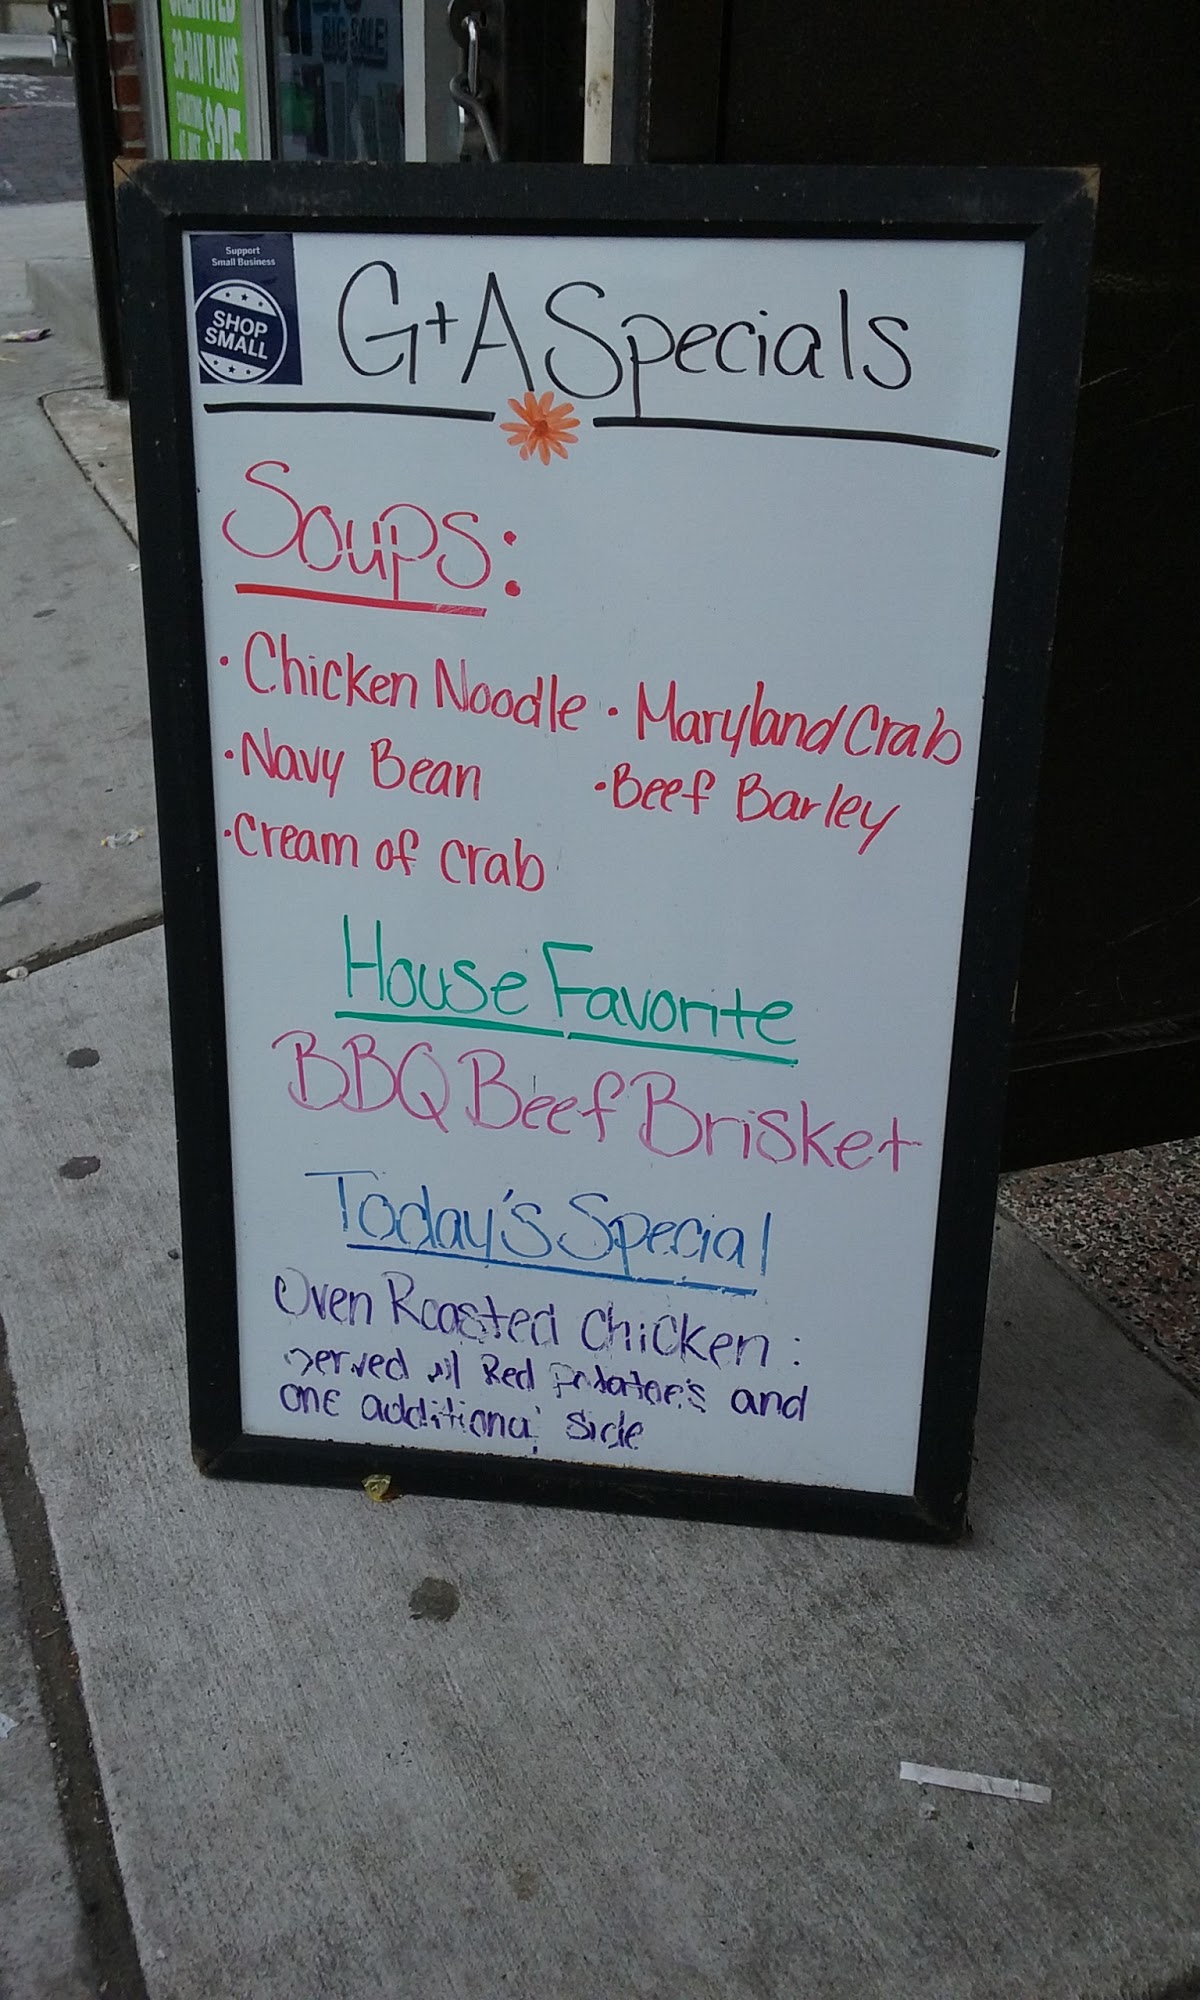 30-DAY PLANS
$25
BIG SALE!
Support
Small Business
SHOP
SMALL
G+A Specials
Soups:
• Chicken Noodle • Maryland Crab
• Navy Bean • Beef Barley
• Cream of crab
House Favorite
BBQ Beef Brisket
Today's Special
Oven Roasted Chicken :
served w/ Red Potatoe's and
one additional side